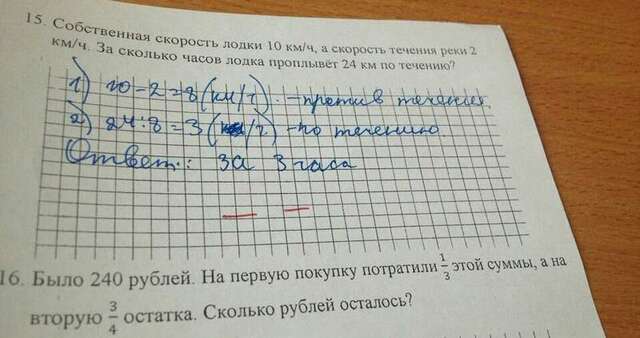 15. Собственная скорость лодки 10 км/ч, а скорость течения реки 2
км/ч. За сколько часов лодка проплывёт 24 км по течению?
1) 10-2=8 (км/ч). -против течения.
2) 24:8=3 (/ч) -по течению
Ответ: за 3 часа
16. Было 240 рублей. На первую покупку потратили 1/3 этой суммы, а на
вторую 3/4 остатка. Сколько рублей осталось?